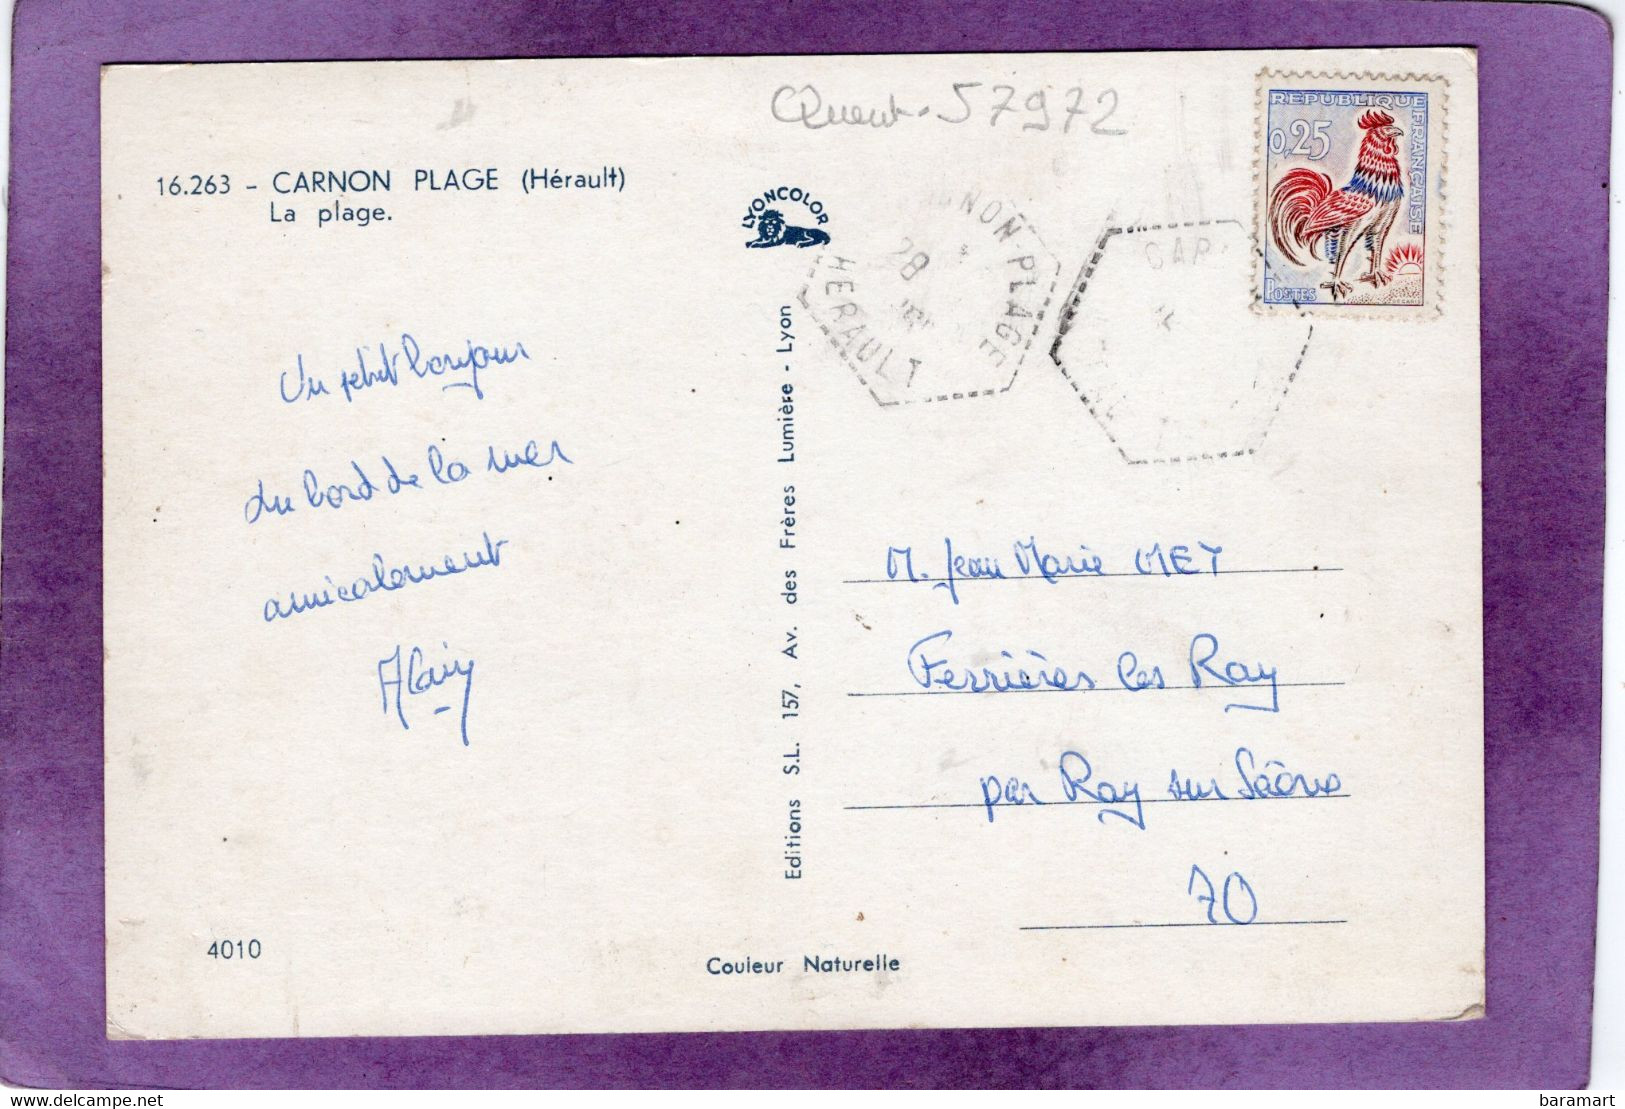 57972
16.263 - CARNON PLAGE (Hérault)
La plage.
LYONCOLOR
REPUBLIQUE FRANÇAISE
0,25
POSTES
DECARIS
28
HERAULT
Un petit bonjour
du bord de la mer
amicalement
Alain
Editions S.L. 157, Av. des Frères Lumière - Lyon
M. Jean Marie OMEY
Ferrières les Ray
par Ray sur Saône
70
4010
Couleur Naturelle
baramart